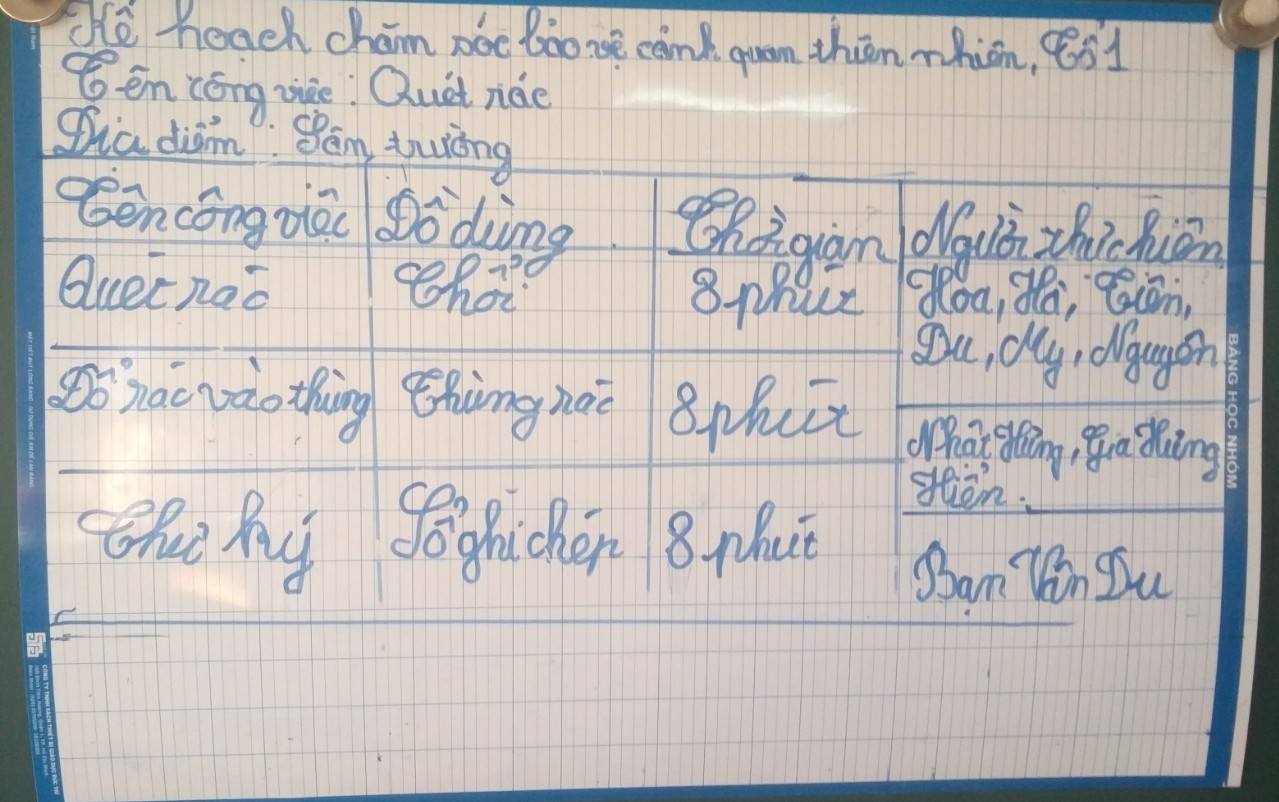 Kế hoạch chăm sóc bảo vệ cảnh quan thiên nhiên, Tổ 1
Tên công việc: Quét rác
Địa điểm: Sân trường
Tên công việc Đồ dùng Thời gian Người thực hiện
Quét rác Chổi 8 phút Hoa, Hà, Tiên,
Du, My, Nguyên
Đổ rác vào thùng Thùng rác 8 phút Nhật Hưng, Gia Hưng
Hiển.
Thư ký Sổ ghi chép 8 phút Bạn Vân Du
BẢNG HỌC NHÓM
CÔNG TY TNHH SÁCH THIẾT BỊ GIÁO DỤC ĐỨC TRÍ